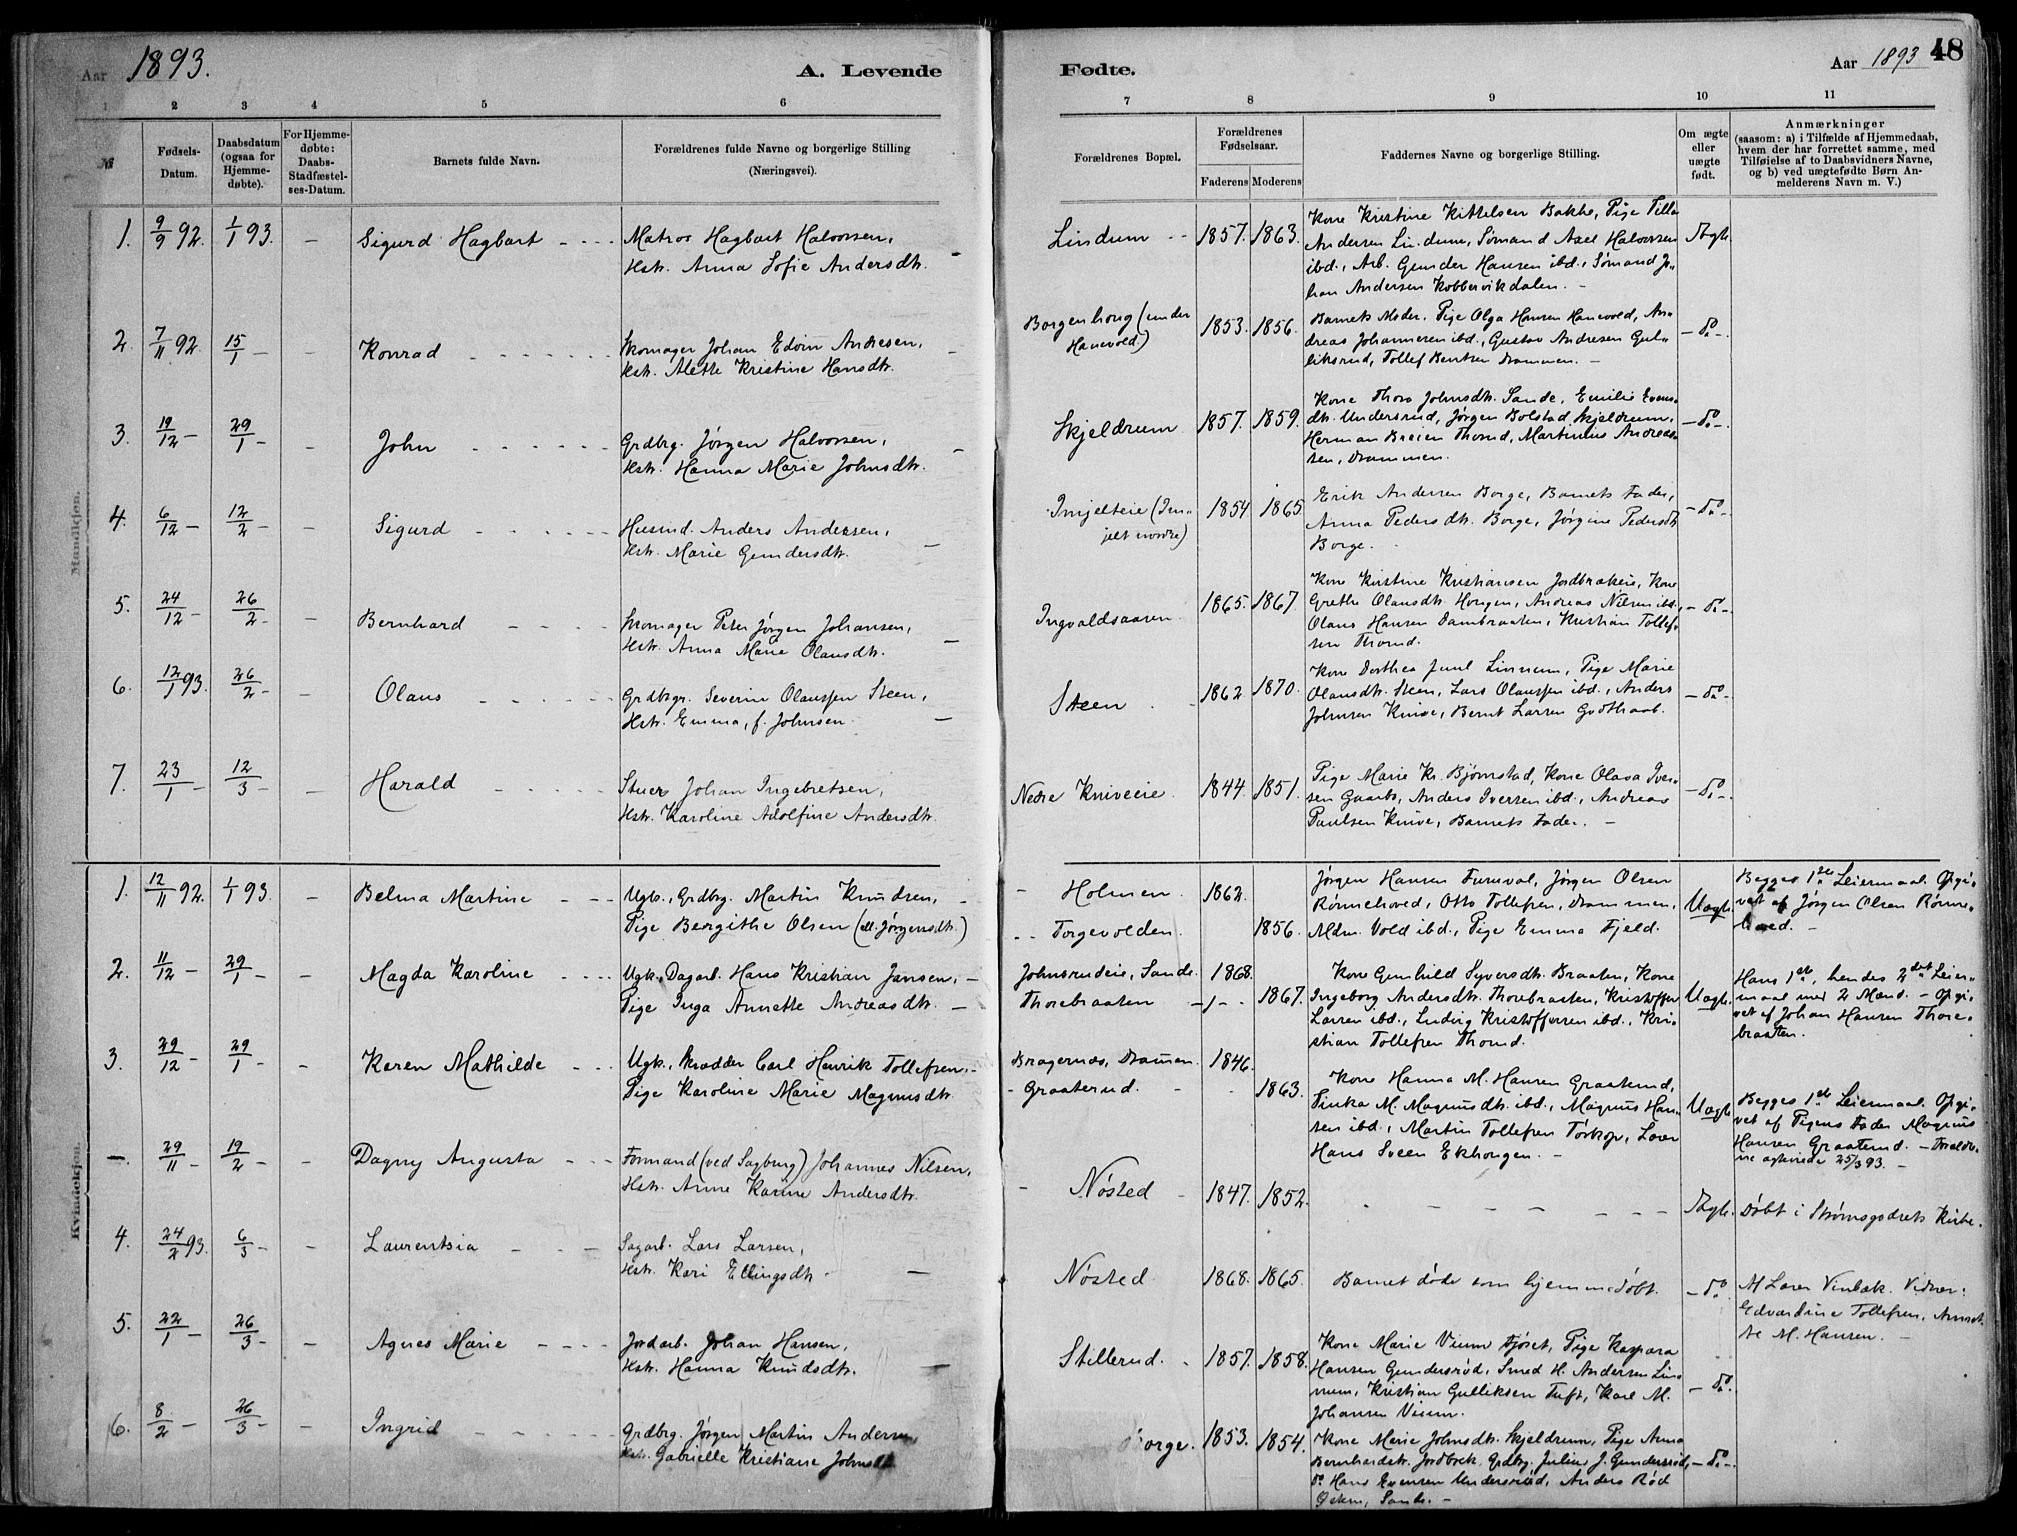 Aar 1893.
A. Levende
1 2 3 4 5 6
№
Fødsels-
Datum.
Daabsdatum
(ogsaa for
Hjemme-
døbte).
For Hjemme-
døbte:
Daabs-
Stadfæstel-
ses-Datum.
Barnets fulde Navn.
Forældrenes fulde Navne og borgerlige Stilling
(Næringsvei).
Mandkjøn.
1. 9/9 92. 1/1 93. - Sigurd Hagbart - - - Matros Hagbart Halvorsen,
Hstr. Anna Sofie Andersdtr. -
2. 7/11 92. 15/1 - - Konrad - - - Skomager Johan Edvin Andresen,
Hstr. Alette Kristine Hansdtr. -
3. 19/12 - 29/1 - - John - - - Grdbrg. Jørgen Halvorsen,
Hstr. Hanna Marie Johnsdtr. -
4. 6/12 - 12/2 - - Sigurd - - - Husmd. Anders Andersen,
Hstr. Marie Gundersdtr. -
5. 24/12 - 26/2 - - Bernhard - - - Skomager Peter Jørgen Johansen,
Hstr. Anna Marie Olausdtr. -
6. 12/1 93. 26/2 - - Olaus - - - Grdbgr. Severin Olaussen Steen,
Hstr. Emma, f. Johnsen. -
7. 23/1 - 12/3 - - Harald - - - Stuer Johan Ingebretsen,
Hstr. Karoline Adolfine Andersdtr.
Kvindekjøn.
1. 12/11 92. 1/1 93. - Belma Martine - - - Ugk., Grdbrg. Martin Knudsen, -
Pige Bergithe Olsen (ell. Jørgensdtr.)
2. 11/12 - 29/1 - - Magda Karoline - - - Ugk. Dagarb. Hans Kristian Jansen, -
Pige Inga Annette Andreasdtr. -
3. 29/12 - 29/1 - - Karen Mathilde - - - Ugk., Skrædder Carl Henrik Tollefsen, -
Pige Karoline Marie Magnusdtr.
- 29/11 - 19/2 - - Dagny Augusta - - - Formand (ved Sagbrug) Johannes Nilsen,
Hstr. Anne Karine Andersdtr.
4. 24/2 93. 6/3 - - Laurentsia - - - Sagarb. Lars Larsen,
Hstr. Kari Ellingsdtr. -
5. 22/1 - 26/3 - - Agnes Marie - - - Jordarb. Johan Hansen,
Hstr. Hanna Knudsdtr. -
6. 8/2 - 26/3 - - Ingrid - - - Grdbrg. Jørgen Martin Andersen,
Hstr. Gabrielle Kristiane Johnsdtr.
Fødte.
Aar 1893 48
7 8 9 10 11
Forældrenes Bopæl.
Forældrenes
Fødselsaar.
Faderens Moderens
Faddernes Navne og borgerlige Stilling.
Om ægte
eller
uægte
født.
Anmærkninger
(saasom: a) i Tilfælde af Hjemmedaab,
hvem der har forrettet samme, med
Tilføielse af to Daabsvidners Navne,
og b) ved uægtefødte Børn An-
melderens Navn m. V.)
Lindum - - 1857. 1863. Kone Kristine Kittelsen Bakke, Pige Tilla
Andersen Lindum, Sømand Axel Halvorsen Ægte.
ibd., Arb. Gunder Hansen ibd., Sømand Jo-
han Andersen Kobbervikdalen. -
Borgenhoug (under
Hanevold) 1853. 1856. Barnets Moder, Pige Olga Hansen Hanevold, An-
dreas Johannesen ibd., Gustav Andresen Gul- - Do -
liksrud, Tollef Bentsen Drammen. -
Skjeldrum 1857. 1859. Kone Thora Johnsdtr. Sande, Emilie Evens-
dtr. Undersrud, Jørgen Bolstad Skjeldrum, - Do -
Herman Breien Thomd, Martinius Andreas-
sen, Drammen.
Imjelteie (Im-
jelt nordre) 1854 1865 Erik Andersen Borge, Barnets Fader, - Do -
Anna Pedersdtr. Borge, Jørgine Pedersdtr
Borge. -
Ingvaldsaasen. 1865. 1867. Kone Kirstine Kristiansen Jordbrækeie, Kone
Grethe Olausdtr. Hougen, Andreas Nilsen ibd., - Do -
Olaus Hansen Dambraaten, Kristian Tollef-
sen Thomd.
Steen - 1862. 1870. Kone Dorthea Juul Linnum, Pige Marie
Olausdtr. Steen, Lars Olaussen ibd., Anders - Do -
Johnsen Knive, Bernt Larsen Godthaab.
Nedre Kniveeie. 1844. 1851. Pige Marie Kr. Bjørnstad, Kone Olava Iver-
sen Gaarbo, Anders Iversen ibd., Andreas - Do -
Paulsen Knive, Barnets Fader. -
- Holmen. 1862. Jørgen Hansen Furuvol, Jørgen Olsen
Rønnehoved, Otto Tollefsen, Drammen, Uægte. Begges 1ste Leiermaal. Opgi-
Torgevolden. 1856. Mdm. Vold ibd., Pige Emma Fjeld. vet af Jørgen Olsen Rønne-
hoved. -
Johnsrudeie, Sande. 1868. Kone Gunhild Syversdtr. Braaten, Kone
Thorebraaten - 1867. Ingeborg Andersdtr. Thorebraaten, Kristoffer Uægte. Hans 1ste, hendes 2det Leier-
Larsen ibd., Ludvig Kristoffersen ibd., Kri- maal med 2 Mænd. - Opgi-
stian Tollefsen Thomd. vet af Johan Hansen Thore-
braaten.
Bragernæs, Drammen. 1846.
- Graaterud. - 1863. Kone Hanna M. Hansen Graaterud,
Tinka M. Magnusdtr. ibd., Magnus Han- Uægte Begges 1ste Leiermaal. Opgi-
sen ibd., Martin Tollefsen Torkop, Laur vet af Pigens Fader Magnus
Hans Sveen Ekhougen. - Hansen Graaterud. - Foreldre-
ne ægteviede 25/3 93. -
- Nøsted - 1847. 1852. - - - - Ægte. Døbt i Strømsgodsets Kirke.
Nøsted. 1868. 1865. Barnet døde som hjemmedøbt. - Do Af Laur Vinbæk. Vidner:
Edvardine Tollefsen, Annet-
te M. Hansen. -
Stillerud. - 1857. 1858. Kone Marie Vium Fjøset, Pige Kaspara
Hansen Gundersrød, Smed H. Andersen Lin-
num, Kristian Gulliksen Tuft, Karl M. - Do -
Johansen Vium.
Borge. 1853. 1854. Kone Marie Johnsdtr. Skjeldrum, Pige Anna
Bernhardstr. Jordbræk, Grdbrg. Julius J. Gundersrød, - Do -
Do Hans Evensen Undersrud, Anders Rød
Sande. -